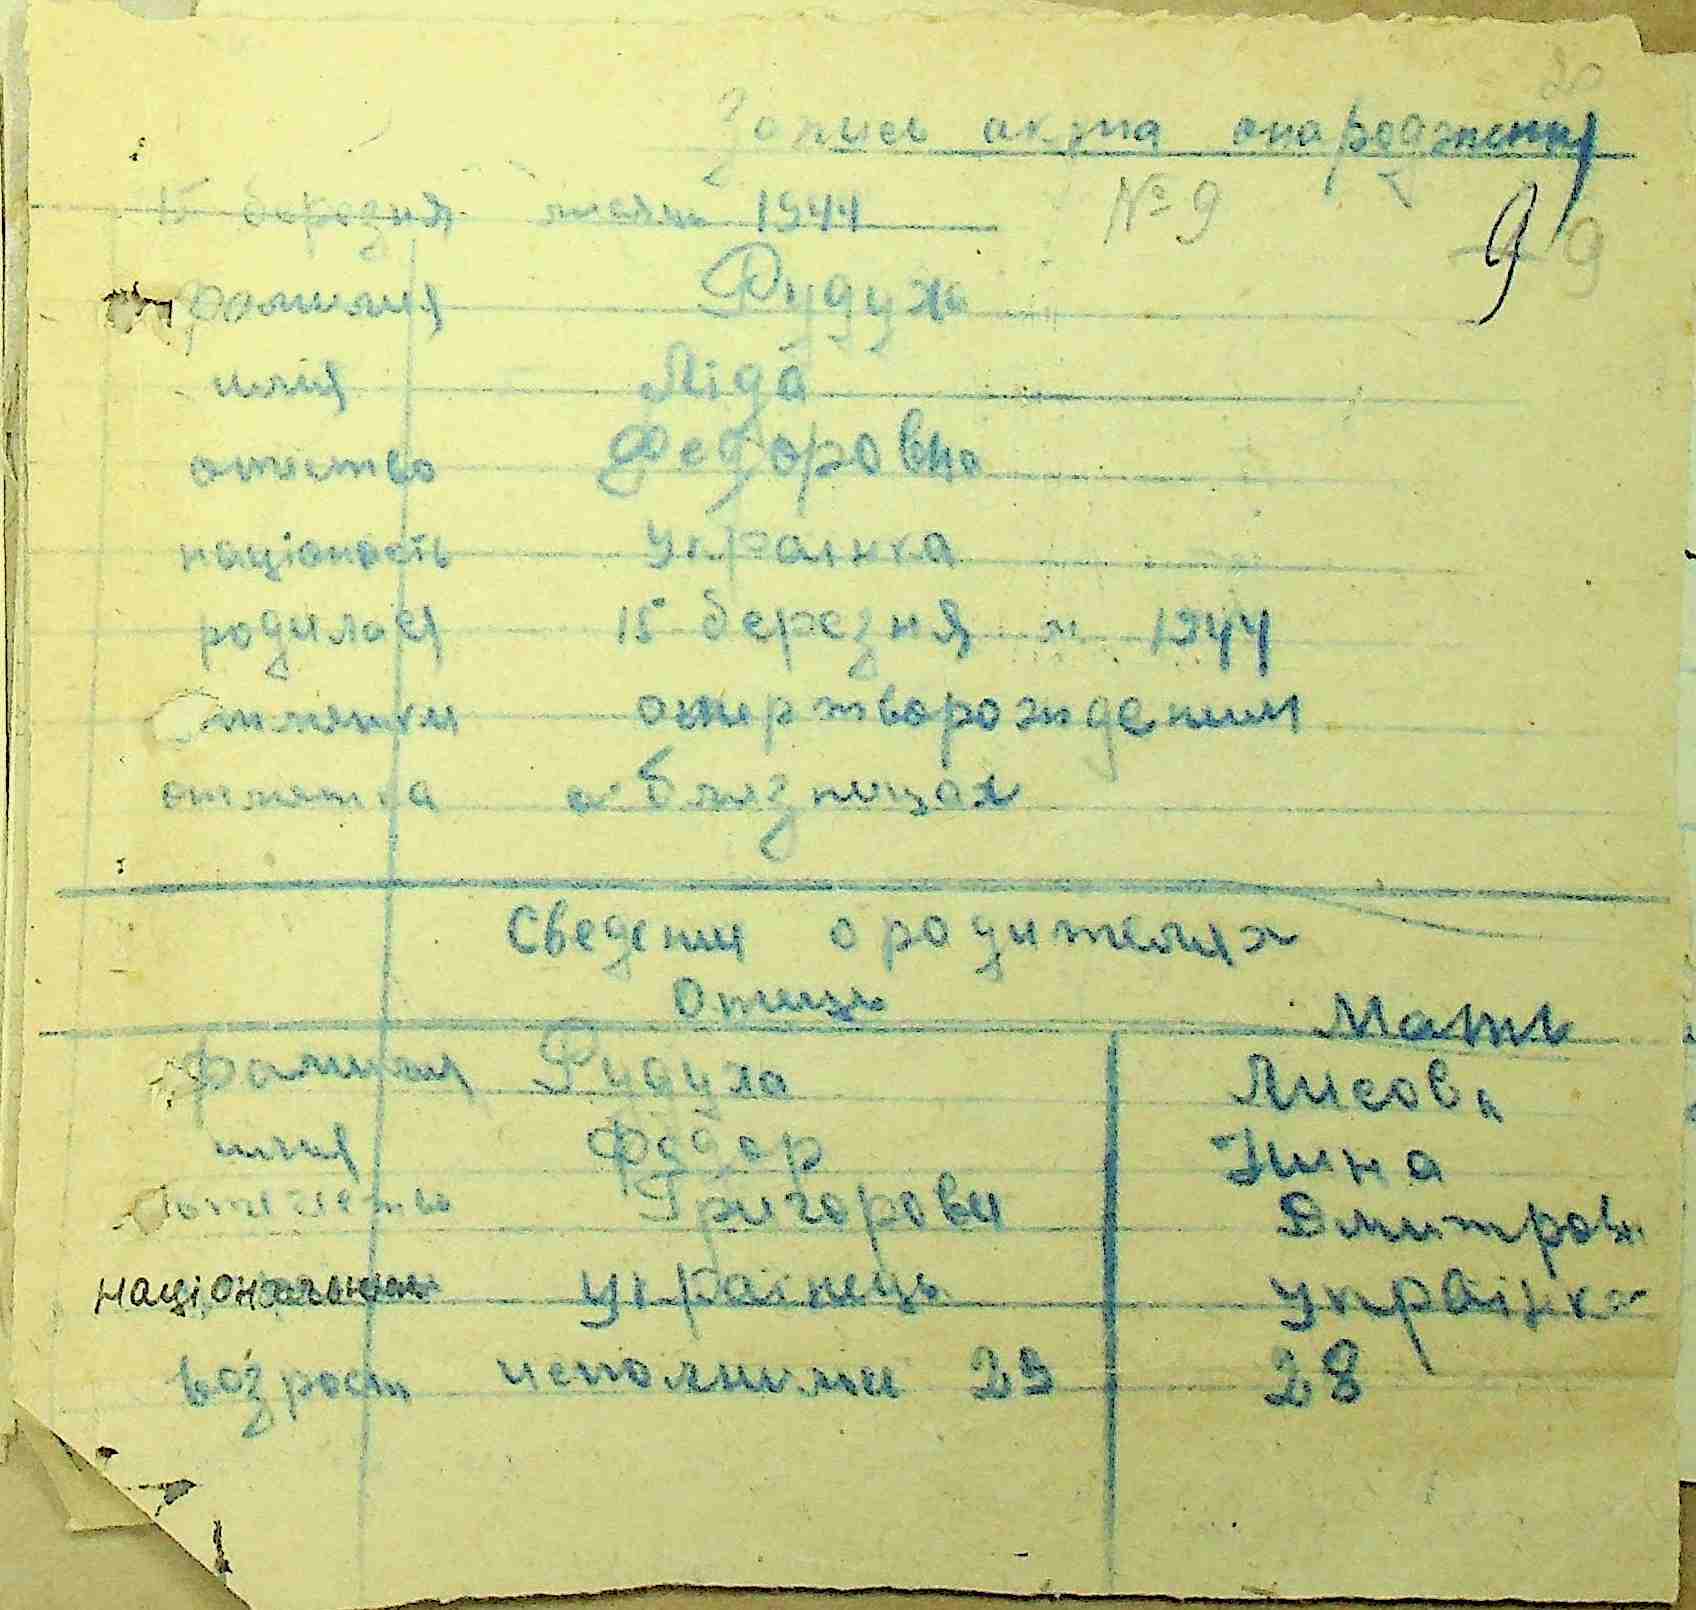 20
Запись акта онарождении
15 березня месяць 1944 № 9 9 9
фамилия Рудуха
имия Ліда
отество Федоровна
націоность українка
родилася 15 березня м 1944
отметки омертворождении
отметка о близницах
Сведения о родителях
Отець Мать
фамилия Рудуха Лисова
имия Фёдор Нина
отичество Григорови Дмитров
національность українець Українка
возрост исполнилось 29 28